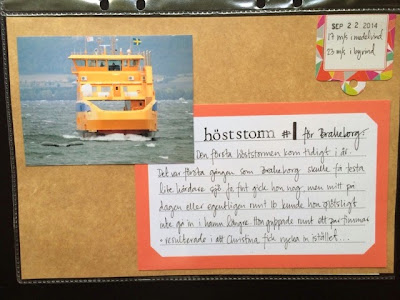 SEP 22 2014
17 m/s i medelvind
23 m/s i byvind
höststorm #1 för Braheborg.
Den första höststormen kom tidigt i år.
Det var första gången som Braheborg skulle få testa
lite hårdare sjö. Ja fint gick hon nog men mitt på
dagen eller egentligen runt 16 kunde hon plötsligt
inte gå in i hamn längre. Hon guppade runt ett par timmar
resulterade i att Christina fick rycka in istället...